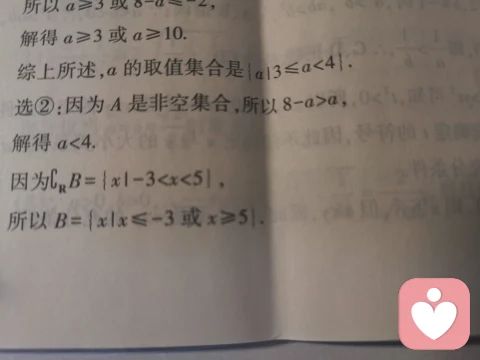 所以 a≥3 或 8-a≤-2,
解得 a≥3 或 a≥10.
综上所述,a 的取值集合是{a|3≤a<4}.
选②:因为 A 是非空集合,所以 8-a>a,
解得 a<4.
因为∁RB={x|-3<x<5},
所以 B={x|x≤-3 或 x≥5}.